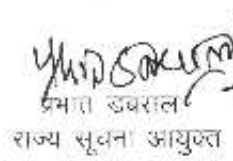 प्रभात डबराल
राज्य सूचना आयुक्त